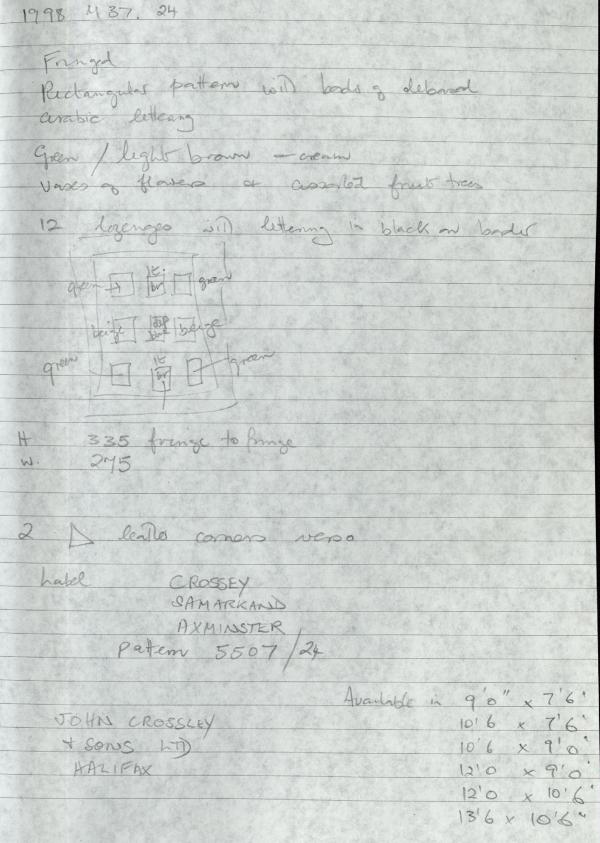 1998 M37. 24
Fringed
Rectangular pattern with bands of debased
arabic lettering
Green / light brown – cream
vases of flowers & assorted fruit trees
12 lozenges with lettering in black on border
green lt. br green
beige beige
green lt br green
H 335 fringe to fringe
W. 275
2 leather corners verso
Label CROSSEY
SAMARKAND
AXMINSTER
Pattern 5507/24
Available in 9'0" x 7'6'
10'6 x 7'6'
JOHN CROSSLEY
+ SONS LTD
HALIFAX
10'6 x 9'0'
12'0 x 9'0'
12'0 x 10'6'
13'6 x 10'6"